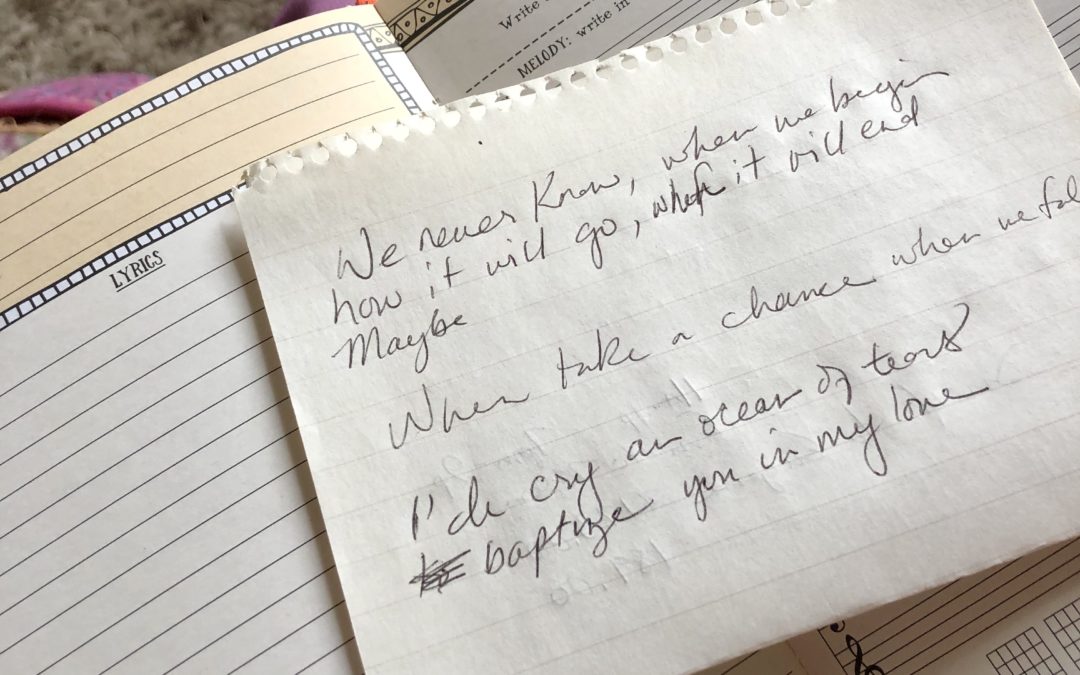 Write
MELODY: write in
LYRICS
We never know, when we begin
how it will go, when it will end
Maybe
When take a chance when we fal
I'de cry an ocean of tears
baptize you in my love